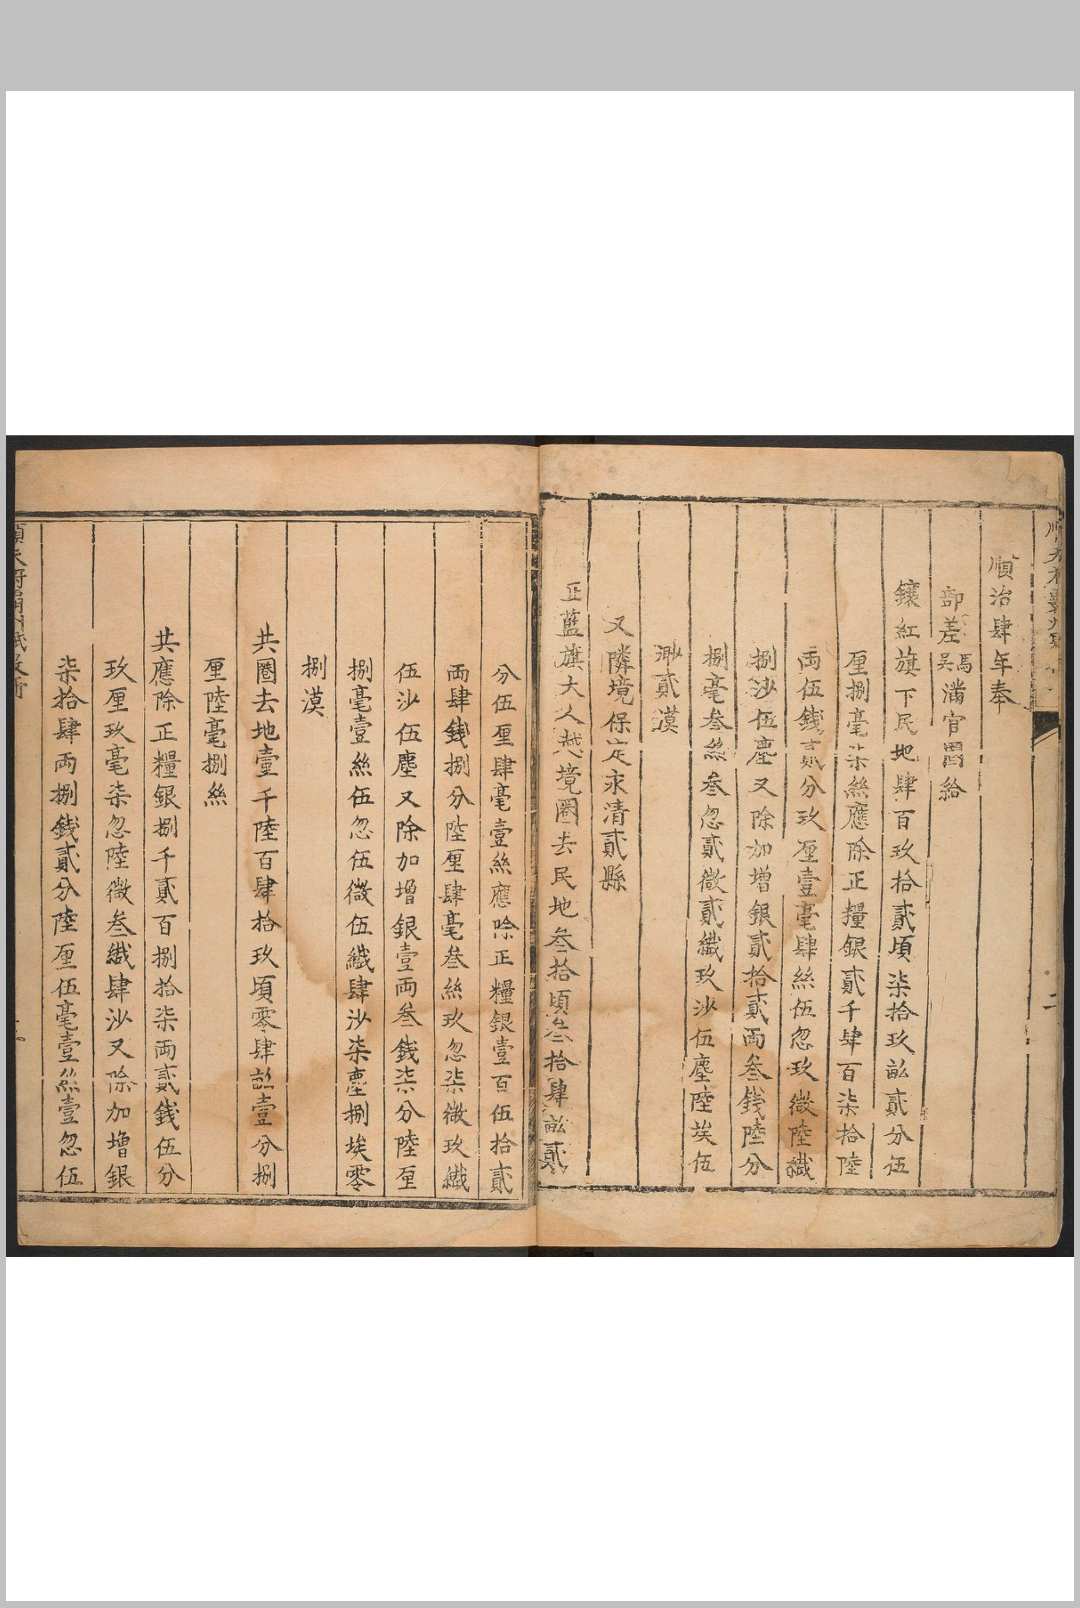 順治肆年奉
部差馮吳滿官圈給
鑲紅旗下民地肆百玖拾貳頃柒拾玖畝貳分伍
厘捌毫柒絲應除正糧銀貳千肆百柒拾陸
両伍錢貳分玖厘壹毫肆絲伍忽玖微陸纎
捌沙伍塵又除加增銀貳拾貳両叁錢陸分
捌毫叁絲叁忽貳微貳纎玖沙伍塵陸埃伍
渺貳漠
又隣境保定永清貳縣
正藍旗大人越境圈去民地叁拾頃叁拾肆畝貳
分伍厘肆毫壹絲應除正糧銀壹百伍拾貳
両肆錢捌分陸厘肆毫叁絲玖忽柒微玖纎
伍沙伍塵又除加增銀壹両叁錢柒分陸厘
捌毫壹絲伍忽伍微伍纎肆沙柒塵捌埃零
捌漠
共圈去地壹千陸百肆拾玖頃零肆畝壹分捌
厘陸毫捌絲
共應除正糧銀捌千貳百捌拾柒両貳錢伍分
玖厘玖毫柒忽陸微叁纎肆沙又除加增銀
柒拾肆両捌錢貳分陸厘伍毫壹絲壹忽伍